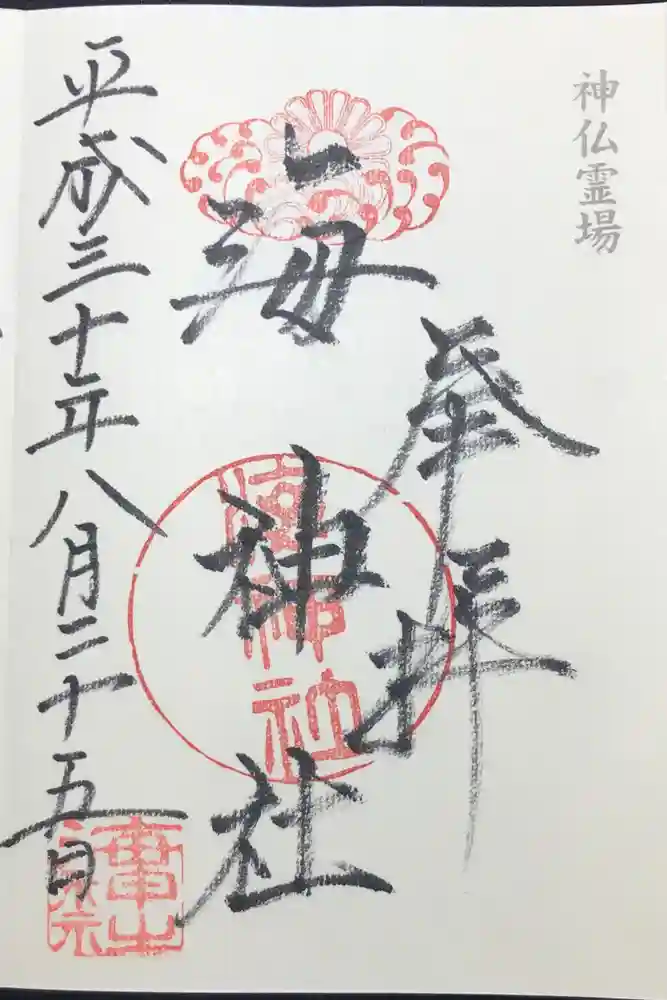 神仏霊場
奉拝
海神社
海神社
平成三十年八月二十五日